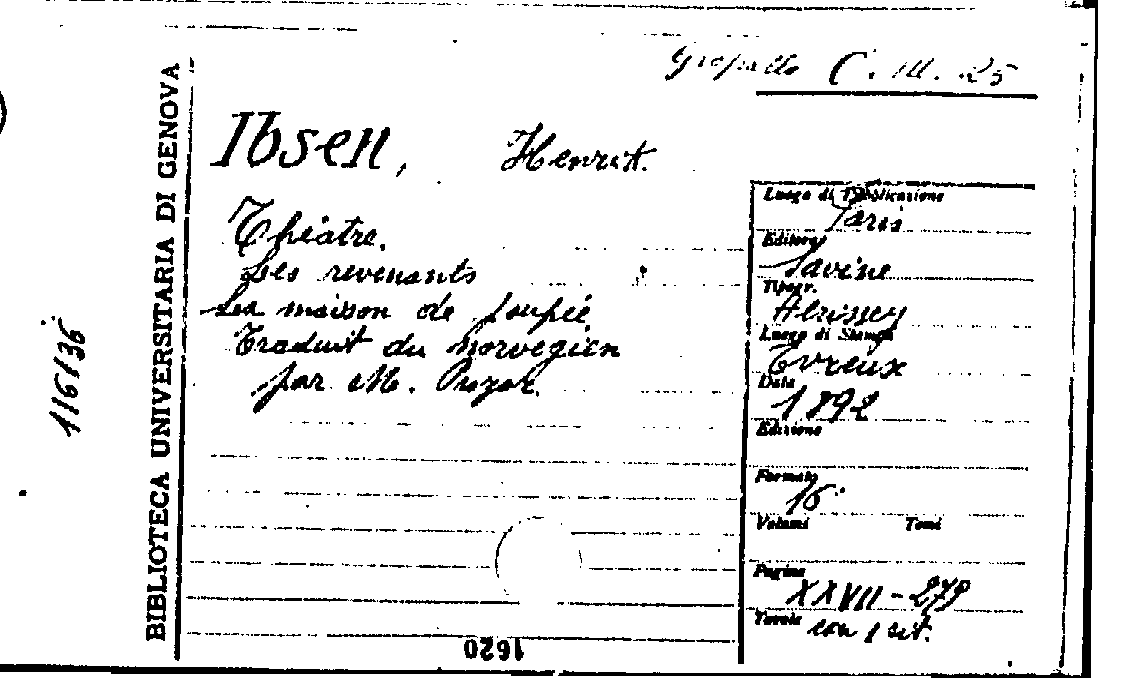 Gropallo C. III. 25
Ibsen, Henrik.
Théatre.
Les revenants
La maison de poupée
Traduit du Norvegien
par M. Prozor.
Luogo di Pubblicazione
Paris
Editore
Savine
Tipogr.
Hérissey
Luogo di Stampa
Evreux
Data
1892
Edizione
Formato
16°
Volumi Tomi
Pagine
XXVII-279
Tavole con 1 rit.
BIBLIOTECA UNIVERSITARIA DI GENOVA
116136
1620